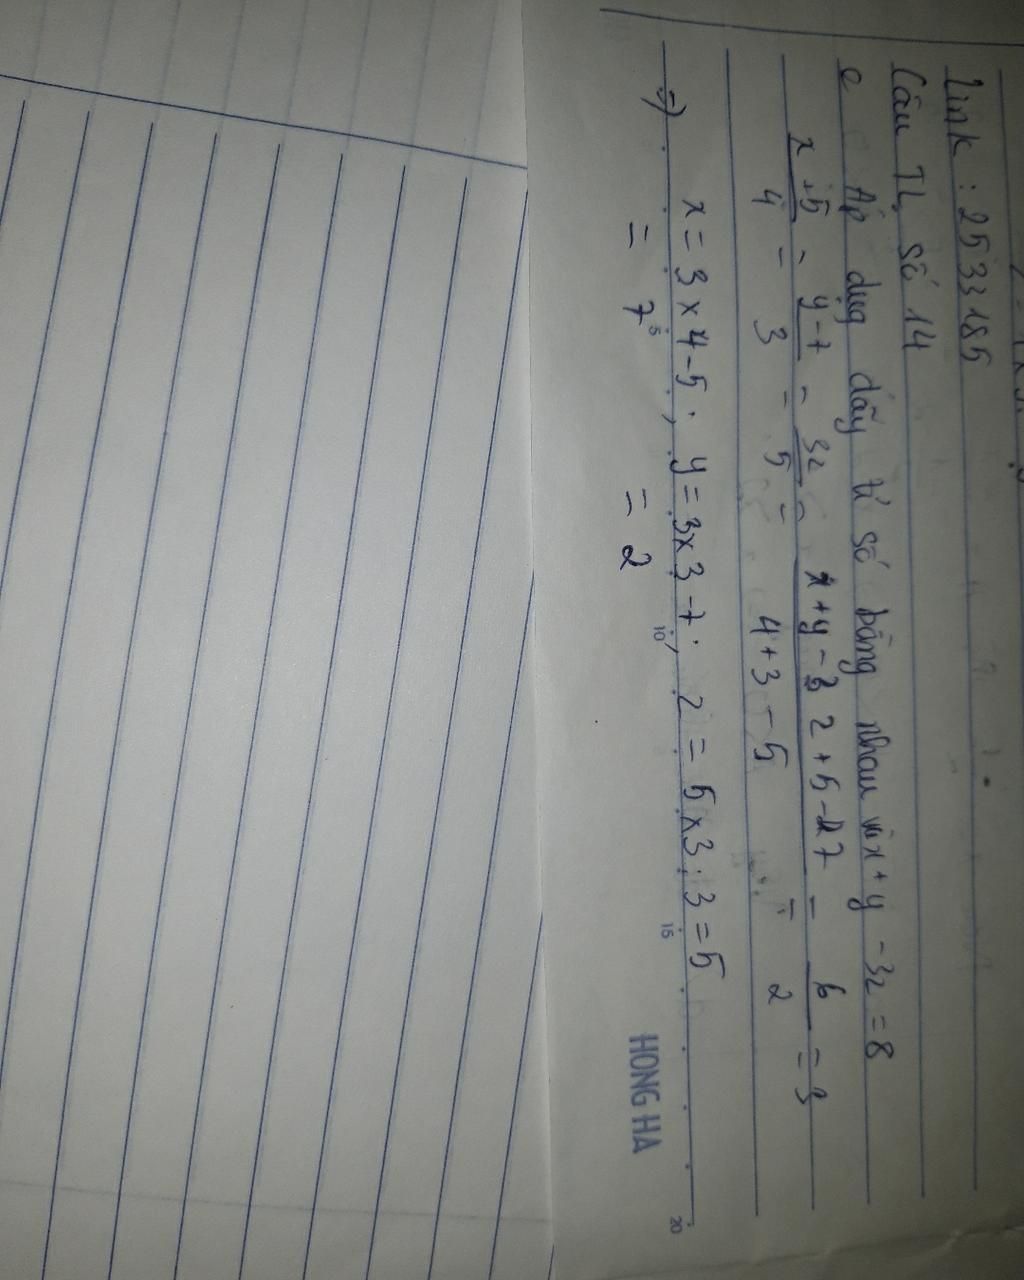 Link : 2533185
Câu TL số 14
e Áp dụg dãy tỉ số bằng nhau và x+y -3z = 8
x+5 = y-7 = 3z = x+y-3z+5-7 = 6 = 3
4 = 3 = 5 = 4+3-5 = 2
=) x = 3 x 4 - 5 ; y = 3x3 -7 ; z = 5x3:3 = 5
= 7 = 2
5 10 15 20
HONG HA